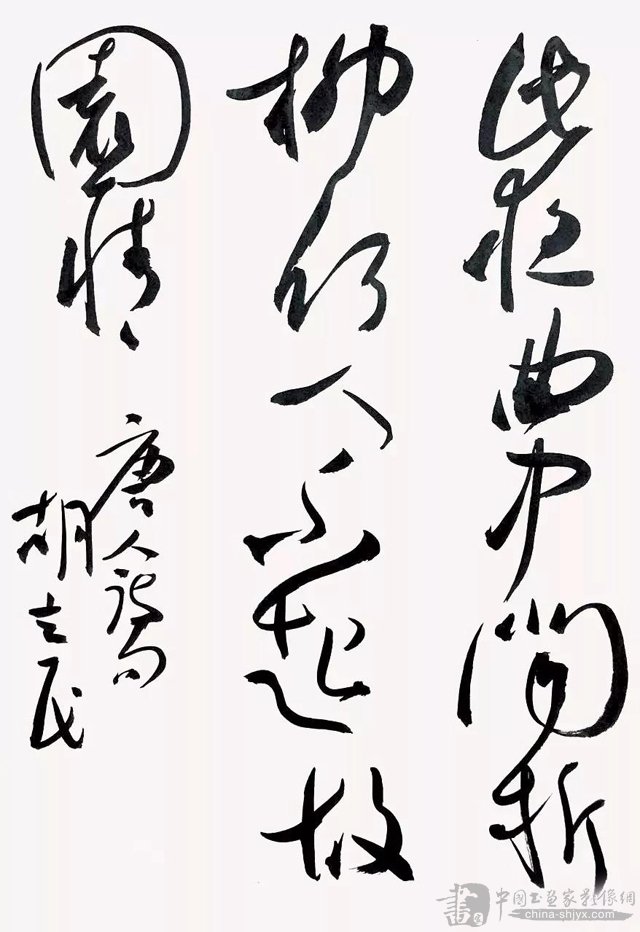 此夜曲中聞折
柳何人不起故
園情
唐人詩句
胡立民
書画
中國书画家影像網
china-shjyx.com